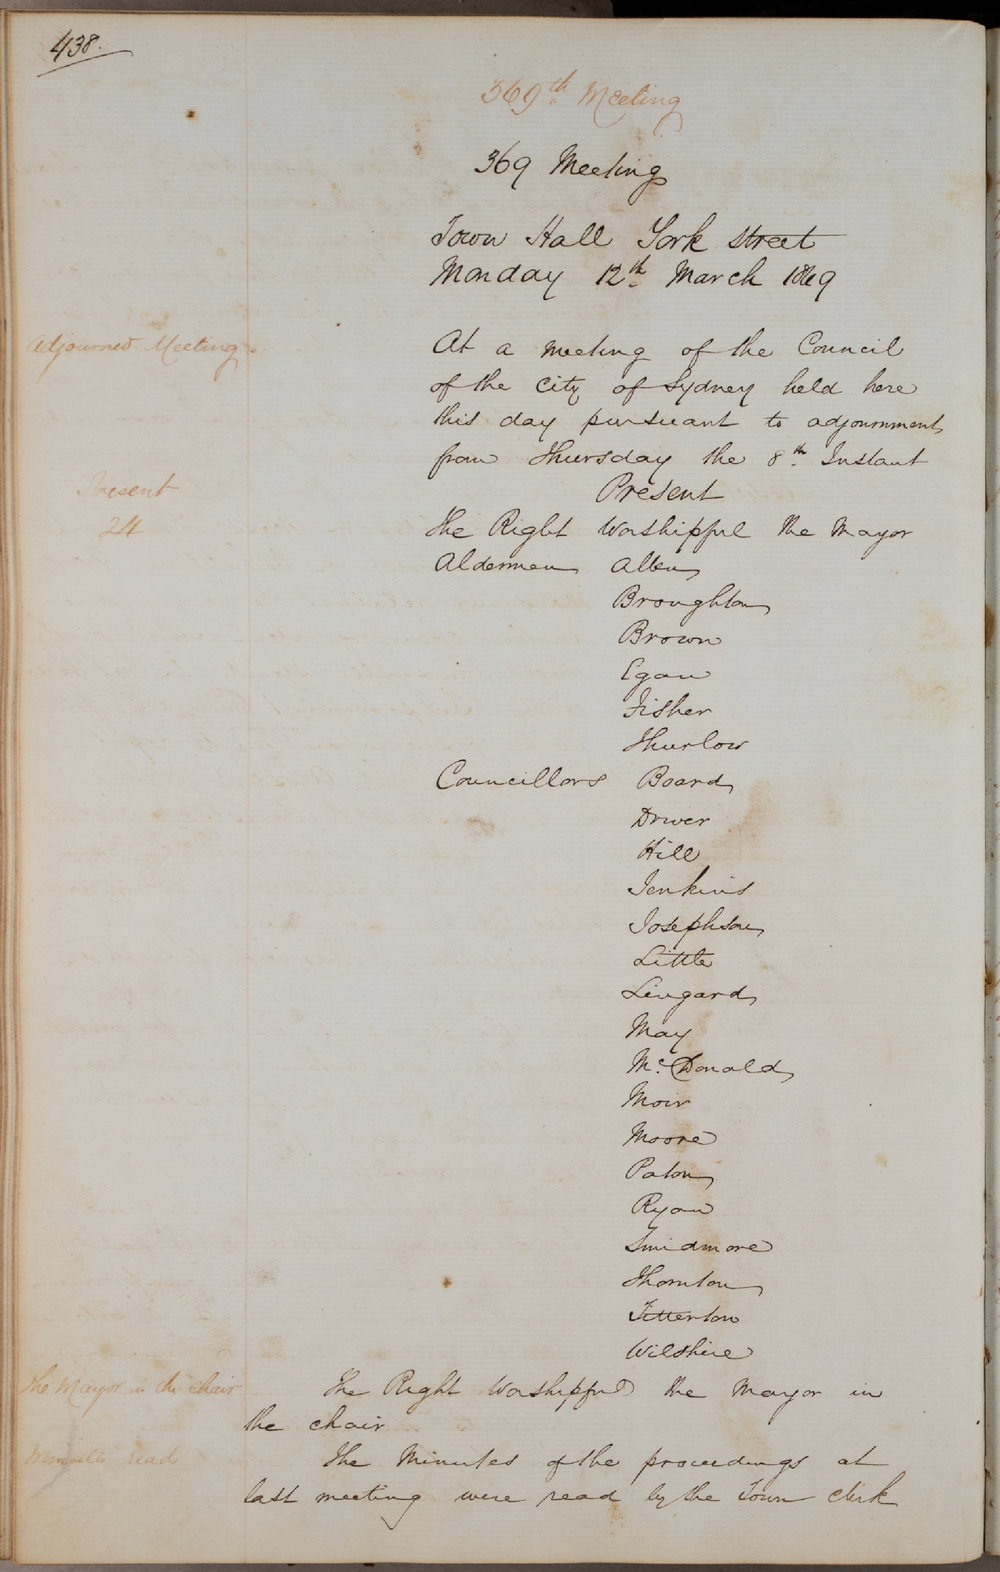 438.
369th Meeting
369 Meeting
Town Hall York street
Monday 12th March 1849
Adjourned Meeting
At a meeting of the Council
of the City of Sydney held here
this day pursuant to adjournment
from Thursday the 8th Instant
Present
24
Present
The Right Worshipful the Mayor
Aldermen Allen
Broughton
Brown
Egan
Fisher
Thurlow
Councillors Board
Driver
Hill
Jenkins
Josephson
Little
Lingard
May
McDonald
Moir
Moore
Paton
Ryan
Smidmore
Thornton
Titterton
Wilshire
The Mayor in the Chair
The Right Worshipful the Mayor in
the chair
Minutes read
The Minutes of the proceedings at
last meeting were read by the Town Clerk